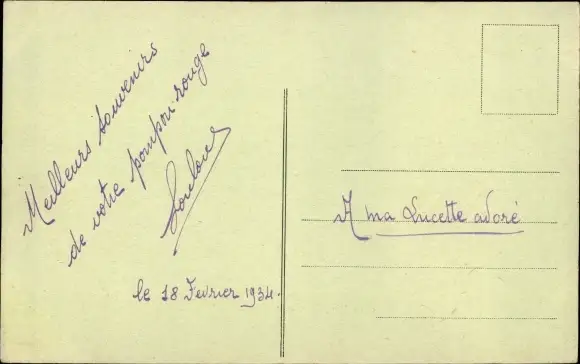 Meilleurs souvenirs
de votre pompon rouge
Loulou
le 18 Fevrier 1934.
A ma Lucette adoré